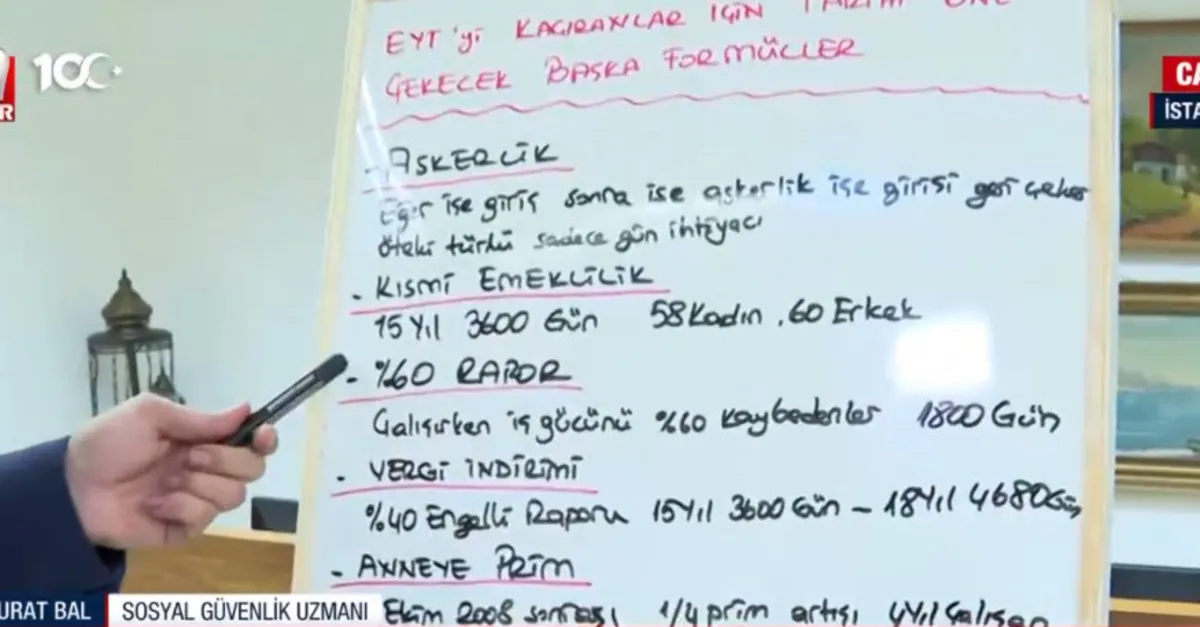 EYT'yi KAÇIRANLAR İÇİN
ÇEKECEK BAŞKA FORMÜLLER
- ASKERLİK
Eğer işe giriş sonra ise askerlik işe girişi geri çeker
öteki türlü sadece gün ihtiyacı
- KISMİ EMEKLİLİK
15 Yıl 3600 Gün 58 Kadın . 60 Erkek
- %60 RAPOR
Çalışırken iş gücünü %60 kaybedenler 1800 Gün
- VERGİ İNDİRİMİ
%40 Engelli Raporu 15 Yıl 3600 Gün - 18 Yıl 4680 Gün
- ANNEYE PRİM
Ekim 2008 sonrası 1/4 prim artışı 4 Yıl Çalışan
100
CA
İSTA
R
URAT BAL
SOSYAL GÜVENLİK UZMANI